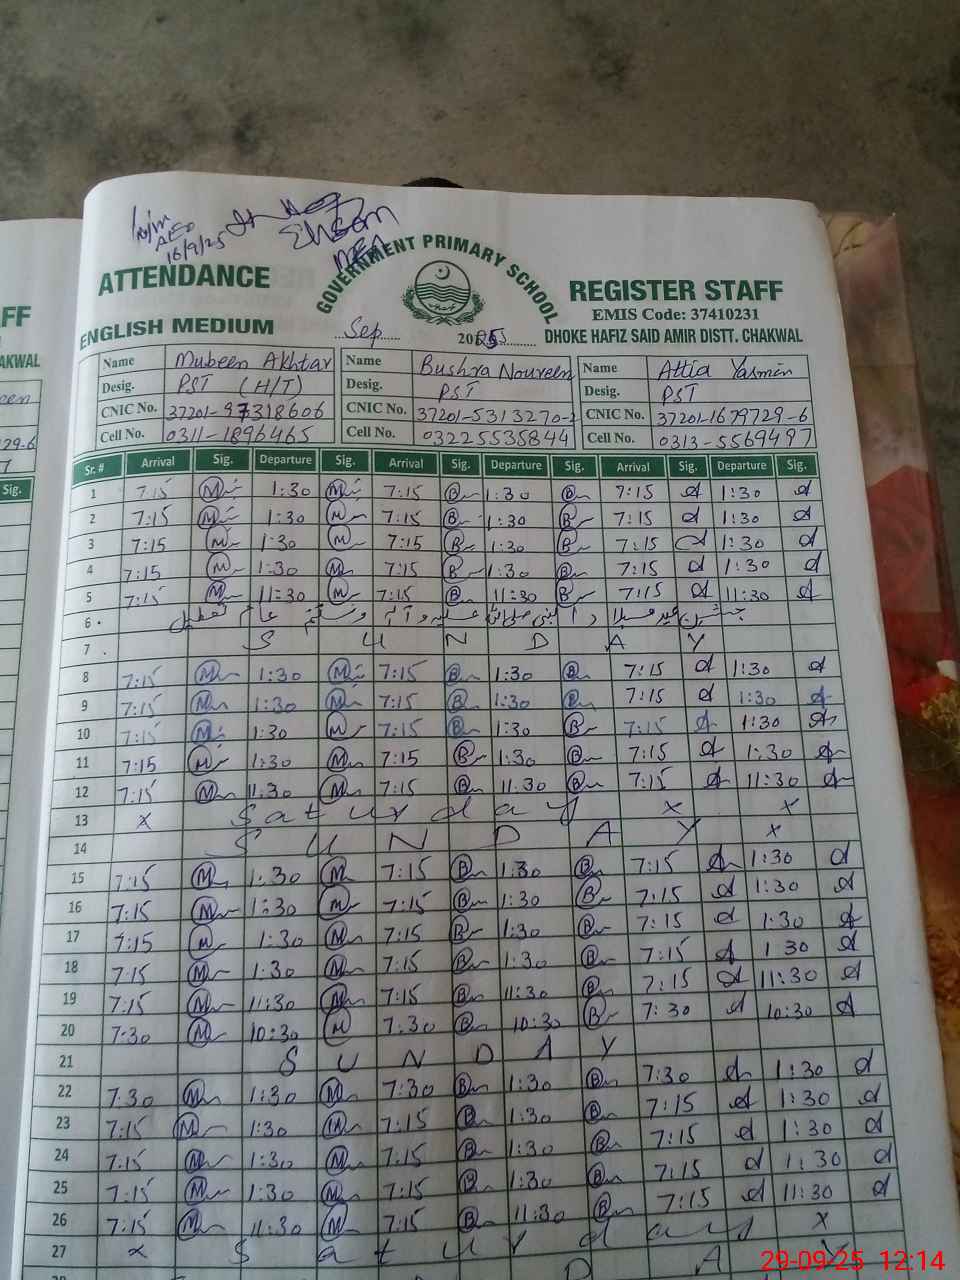 AEO
16/9/25
Ehsan
MEA
GOVERNMENT PRIMARY SCHOOL
ATTENDANCE REGISTER STAFF
EMIS Code: 37410231
ENGLISH MEDIUM Sep 2025 DHOKE HAFIZ SAID AMIR DISTT. CHAKWAL
FF
AKWAL
Sig.
Name Mubeen Akhtar Name Bushra Noureen Name Attia Yasmin
Desig. PST (H/T) Desig. PST Desig. PST
CNIC No. 37201-97318606 CNIC No. 37201-5313270-2 CNIC No. 37201-1679729-6
Cell No. 0311-1896465 Cell No. 03225535844 Cell No. 0313-5569497
Sr. # Arrival Sig. Departure Sig. Arrival Sig. Departure Sig. Arrival Sig. Departure Sig.
1 7:15 M 1:30 M 7:15 B 1:30 B 7:15 A 1:30 A
2 7:15 M 1:30 M 7:15 B 1:30 B 7:15 A 1:30 A
3 7:15 M 1:30 M 7:15 B 1:30 B 7:15 A 1:30 A
4 7:15 M 1:30 M 7:15 B 1:30 B 7:15 A 1:30 A
5 7:15 M 11:30 M 7:15 B 11:30 B 7:15 A 11:30 A
6 عام تعطیل
7 S U N D A Y
8 7:15 M 1:30 M 7:15 B 1:30 B 7:15 A 1:30 A
9 7:15 M 1:30 M 7:15 B 1:30 B 7:15 A 1:30 A
10 7:15 M 1:30 M 7:15 B 1:30 B 7:15 A 1:30 A
11 7:15 M 1:30 M 7:15 B 1:30 B 7:15 A 1:30 A
12 7:15 M 11:30 M 7:15 B 11:30 B 7:15 A 11:30 A
13 x S a t u r d a y x x
14 S U N D A Y x
15 7:15 M 1:30 M 7:15 B 1:30 B 7:15 A 1:30 A
16 7:15 M 1:30 M 7:15 B 1:30 B 7:15 A 1:30 A
17 7:15 M 1:30 M 7:15 B 1:30 B 7:15 A 1:30 A
18 7:15 M 1:30 M 7:15 B 1:30 B 7:15 A 1 30 A
19 7:15 M 11:30 M 7:15 B 11:30 B 7:15 A 11:30 A
20 7:30 M 10:30 M 7:30 B 10:30 B 7:30 A 10:30 A
21 S U N D A Y
22 7:30 M 1:30 M 7:30 B 1:30 B 7:30 A 1:30 A
23 7:15 M 1:30 M 7:15 B 1:30 B 7:15 A 1:30 A
24 7:15 M 1:30 M 7:15 B 1:30 B 7:15 A 1:30 A
25 7:15 M 1:30 M 7:15 B 1:30 B 7:15 A 1:30 A
26 7:15 M 11:30 M 7:15 B 11:30 B 7:15 A 11:30 A
27 x S a t u r d a y x
D A Y
29-09-25 12:14